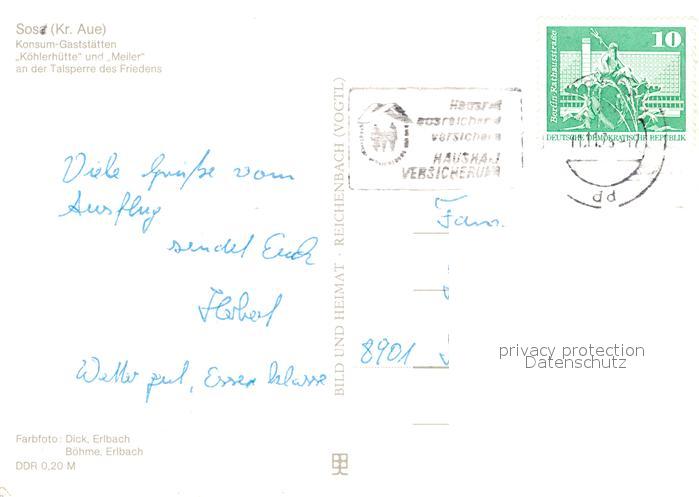 Sosa (Kr. Aue)
Konsum-Gaststätten
„Köhlerhütte" und „Meiler"
an der Talsperre des Friedens
Viele Grüße vom
Ausflug
sendet Euch
Wetter gut, Essen klasse
Farbfoto: Dick, Erlbach
Böhme, Erlbach
DDR 0,20 M
BILD UND HEIMAT · REICHENBACH (VOGTL)
Hausrat
ausreichend
versichern
HAUSHALT
VERSICHERUNG
10
Berlin Rathausstraße
DEUTSCHE DEMOKRATISCHE REPUBLIK
Fam.
8901
privacy protection
Datenschutz